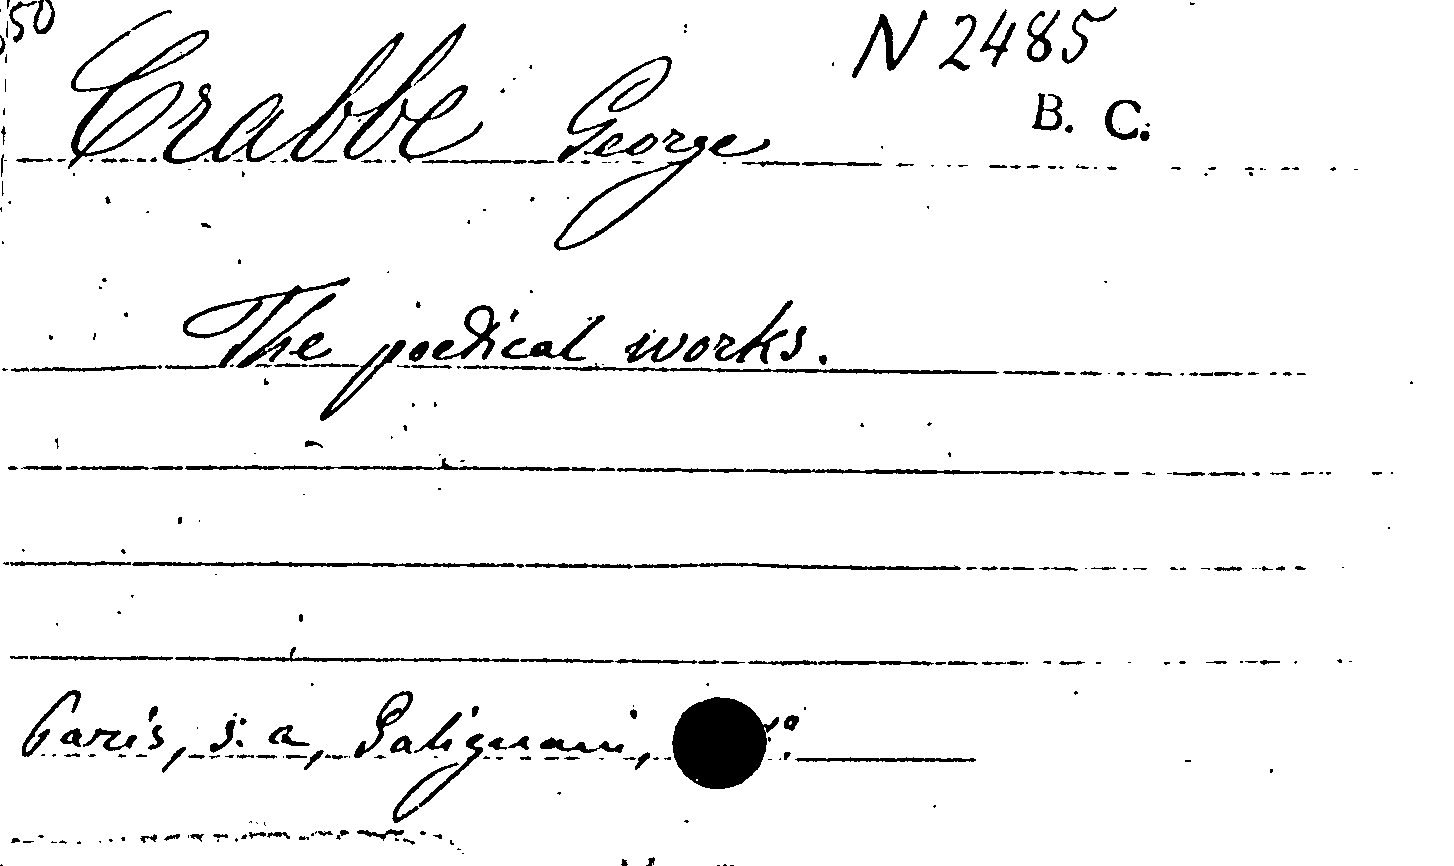 50
N 2485
B. C.
Crabbe George
The poetical works.
Paris, s. a, Galignani,